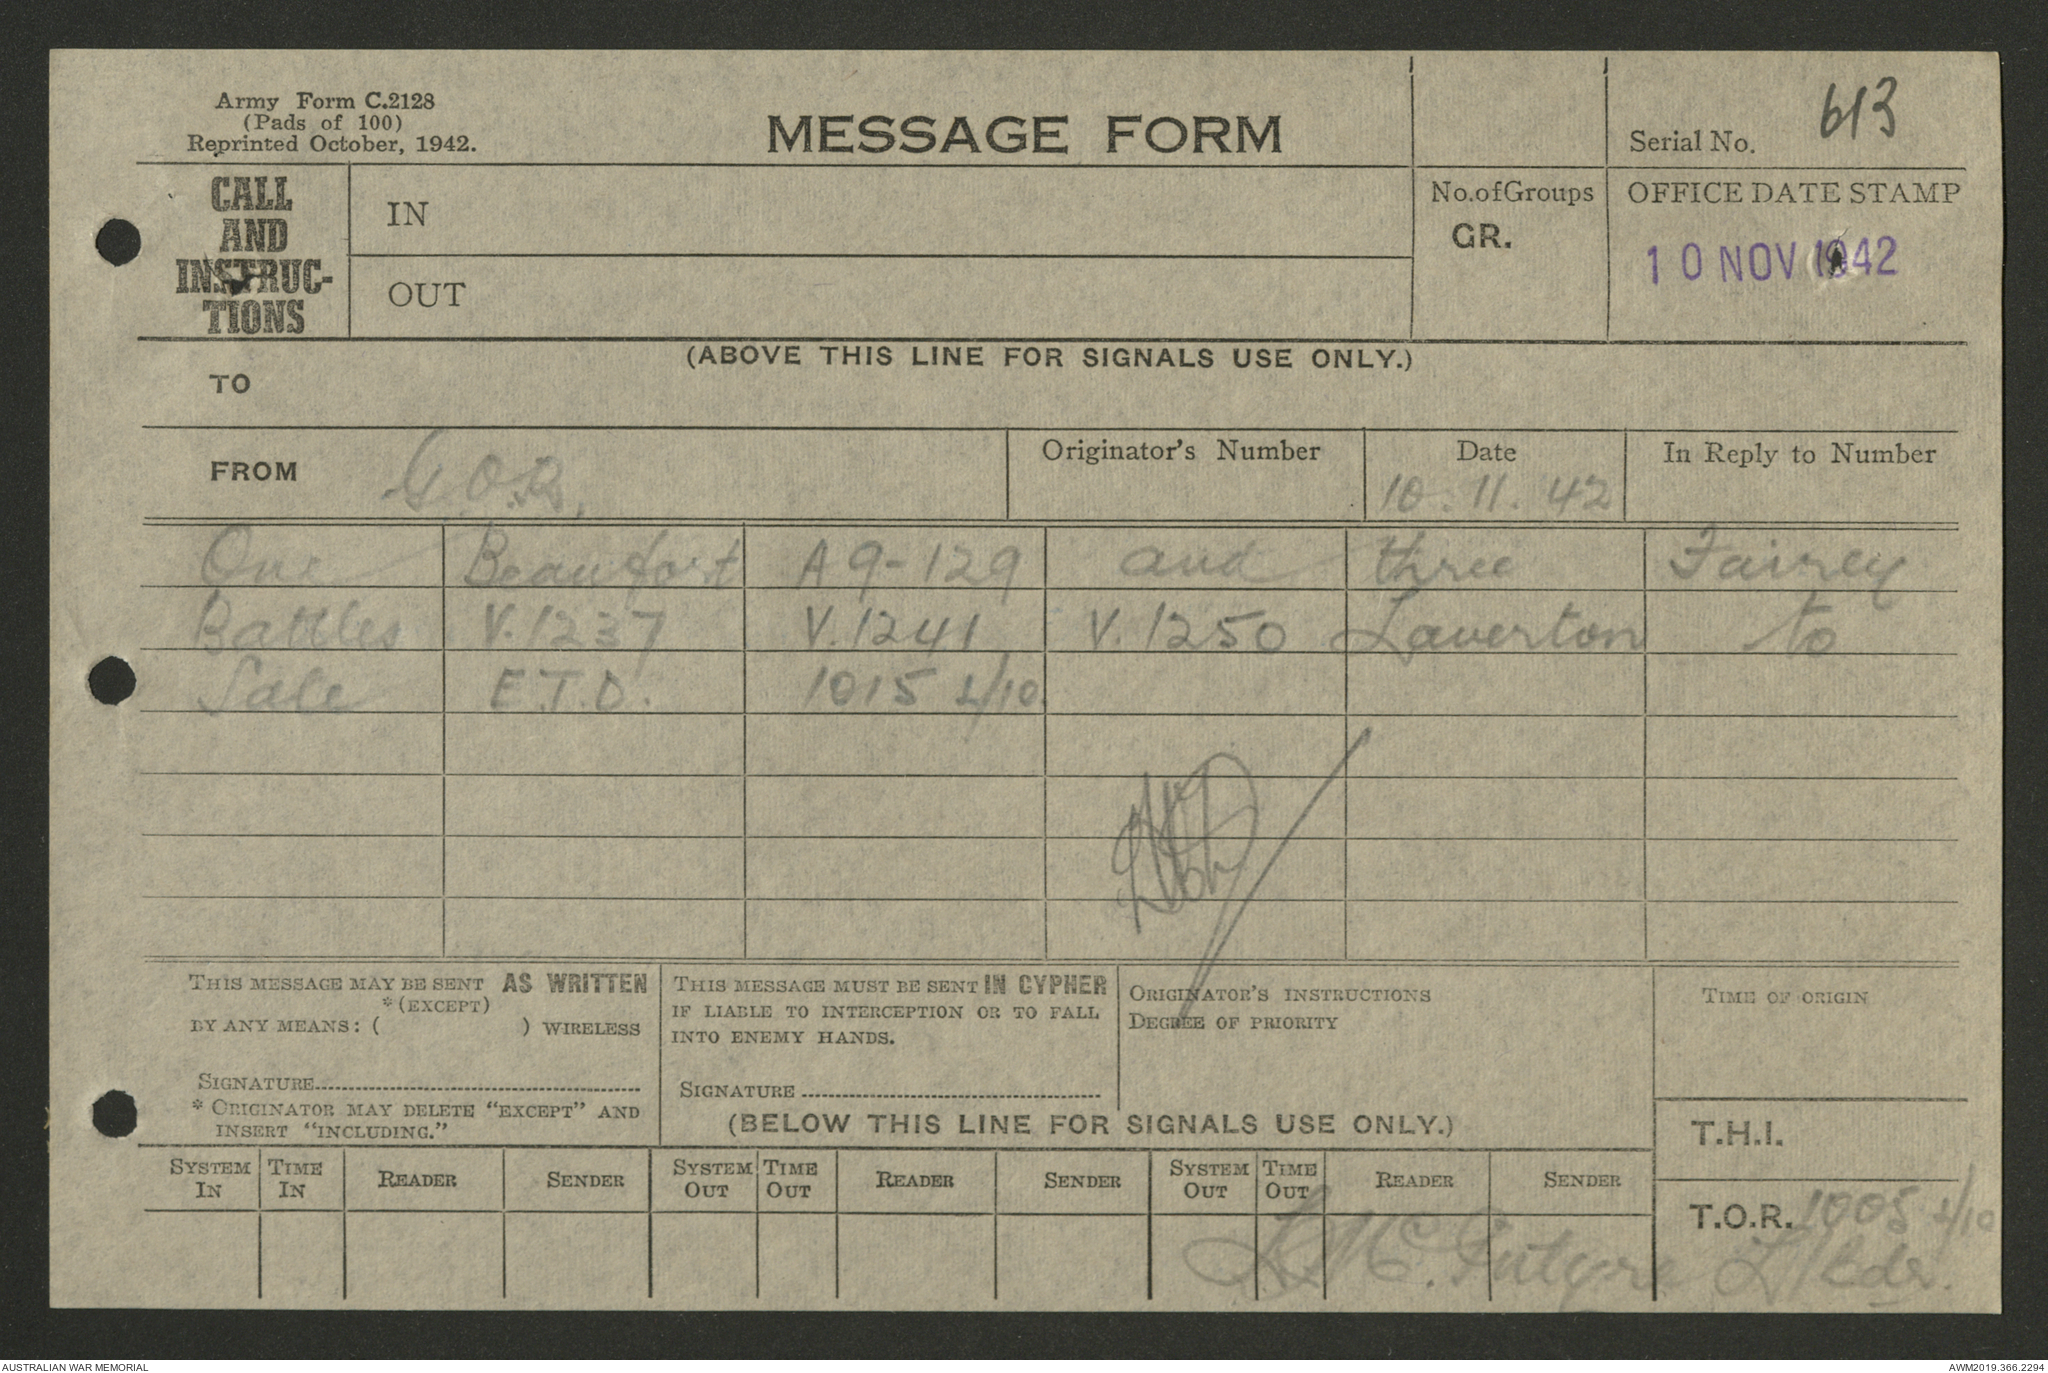 Army Form C.2128
(Pads of 100)
Reprinted October, 1942.
MESSAGE FORM
Serial No. 613
CALL AND INSTRUC-TIONS
IN
OUT
No.ofGroups
GR.
OFFICE DATE STAMP
10 NOV 1942
(ABOVE THIS LINE FOR SIGNALS USE ONLY.)
TO
FROM G.O.R.
Originator's Number
Date
10.11.42
In Reply to Number
One Beaufort A9-129 and three Fairey
Battles V.1237 V.1241 V.1250 Laverton to
Sale E.T.D. 1015 L/10
THIS MESSAGE MAY BE SENT AS WRITTEN
*(EXCEPT)
BY ANY MEANS: ( ) WIRELESS
SIGNATURE
* ORIGINATOR MAY DELETE "EXCEPT" AND
INSERT "INCLUDING."
THIS MESSAGE MUST BE SENT IN CYPHER
IF LIABLE TO INTERCEPTION OR TO FALL
INTO ENEMY HANDS.
SIGNATURE
ORIGINATOR'S INSTRUCTIONS
DEGREE OF PRIORITY
TIME OF ORIGIN
(BELOW THIS LINE FOR SIGNALS USE ONLY.)
T.H.I.
SYSTEM IN TIME IN READER SENDER SYSTEM OUT TIME OUT READER SENDER SYSTEM OUT TIME OUT READER SENDER
T.O.R. 1005 L/10
McIntyre L/Bdr.
AUSTRALIAN WAR MEMORIAL
AWM2019.366.2294